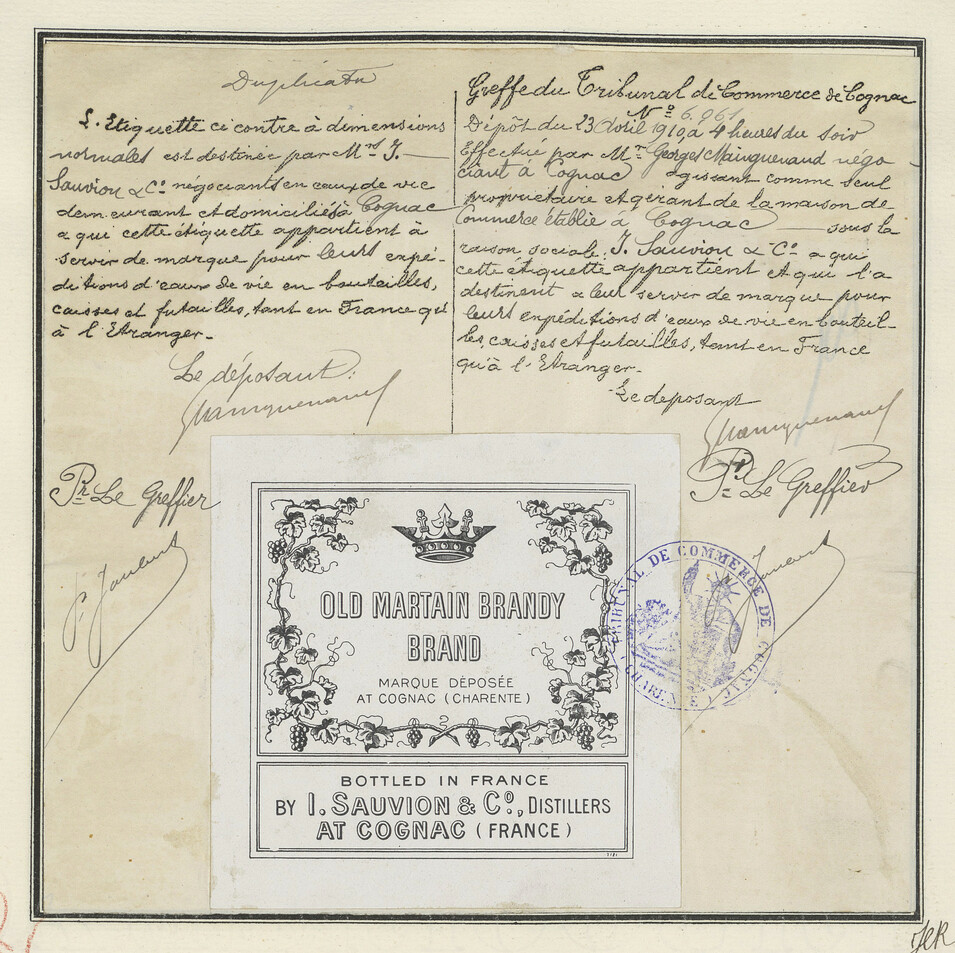 Duplicata
L'Etiquette ci contre à dimensions
normales est destinée par Mrs J.
Sauvion & Co négociants en eaux de vie
demeurant et domiciliés à Cognac
a qui cette étiquette appartient à
servir de marque pour leurs expé-
ditions d'eaux de vie en bouteilles,
caisses et futailles, tant en France qu'
à l'Etranger.
Le déposant:
Mainguenaud
Pr Le Greffier
Greffe du Tribunal de Commerce de Cognac
No 6.961
Dépôt du 23 Avril 1910 à 4 heures du soir
Effectué par Mr Georges Mainguenaud négo
ciant à Cognac agissant comme seul
propriétaire et gérant de la maison de
Commerce établie à Cognac sous la
raison sociale: J. Sauvion & Co a qui
cette étiquette appartient et qui l'a
destinent a leur servir de marque pour
leurs expéditions d'eaux de vie en bouteil-
les caisses et futailles, tant en France
qu'à l'Etranger.
Le déposant
Mainguenaud
Pr Le Greffier
OLD MARTAIN BRANDY
BRAND
MARQUE DÉPOSÉE
AT COGNAC (CHARENTE)
BOTTLED IN FRANCE
BY I. SAUVION & Co, DISTILLERS
AT COGNAC (FRANCE)
TRIBUNAL DE COMMERCE DE COGNAC
(CHARENTE)
JCR